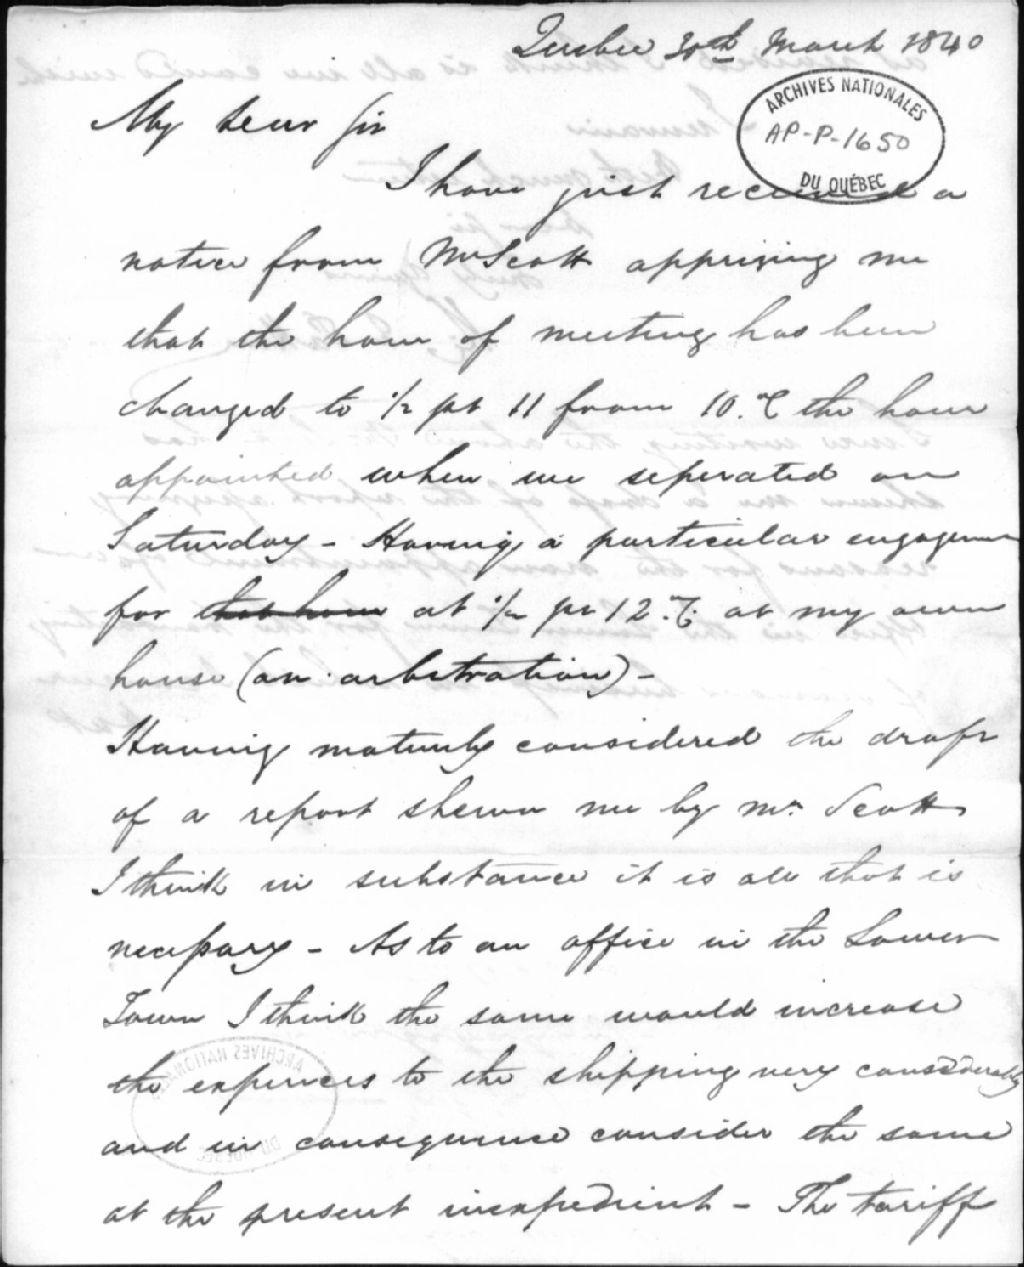 Quebec 30th March 1840
ARCHIVES NATIONALES
AP-P-1650
DU QUÉBEC
My Dear Sir
I have just received a
notice from Mr Scott apprising me
that the hour of meeting has been
changed to ½ pt 11 from 10.℃ the hour
appointed when we seperated on
Saturday - Having a particular engagemen
for that hour at ½ pt 12.℃. at my own
house (an arbitration) -
Having maturely considered the draft
of a report shewn me by Mr. Scott
I think in substance it is all that is
necessary - As to an office in the Lower
Town I think the same would increase
the expences to the shipping very considerably
and in consequence consider the same
at the present inexpedient - The tariff